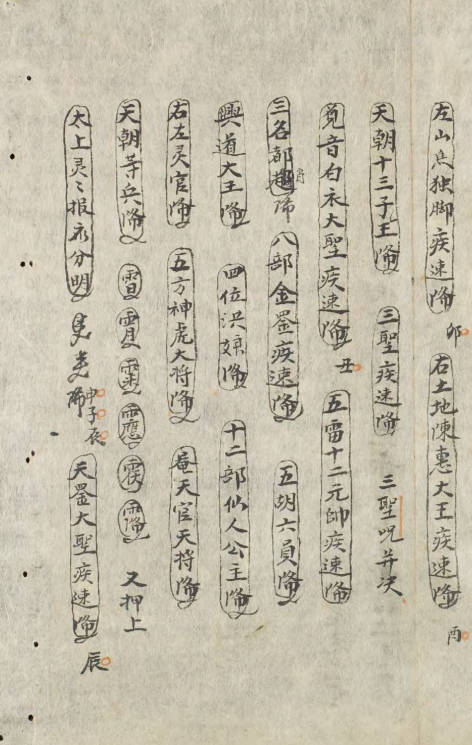 左山独脚疾速降 卯 右土地陳惠大王疾速降 酉
天朝十三子王降 三聖疾速降 三聖咒并决
音白衣大聖疾速降 丑 五雷十二元帥疾速降
三名都降 八部金罡疾速降 五胡六員降
興道大王降 四位洪娘降 十二部仙人公主降
右左灵官降 五方神虎大将降 天官天将降
天朝等兵降 又押上
太上灵〻报应分明 降 申子辰 天罡大聖疾速降 辰